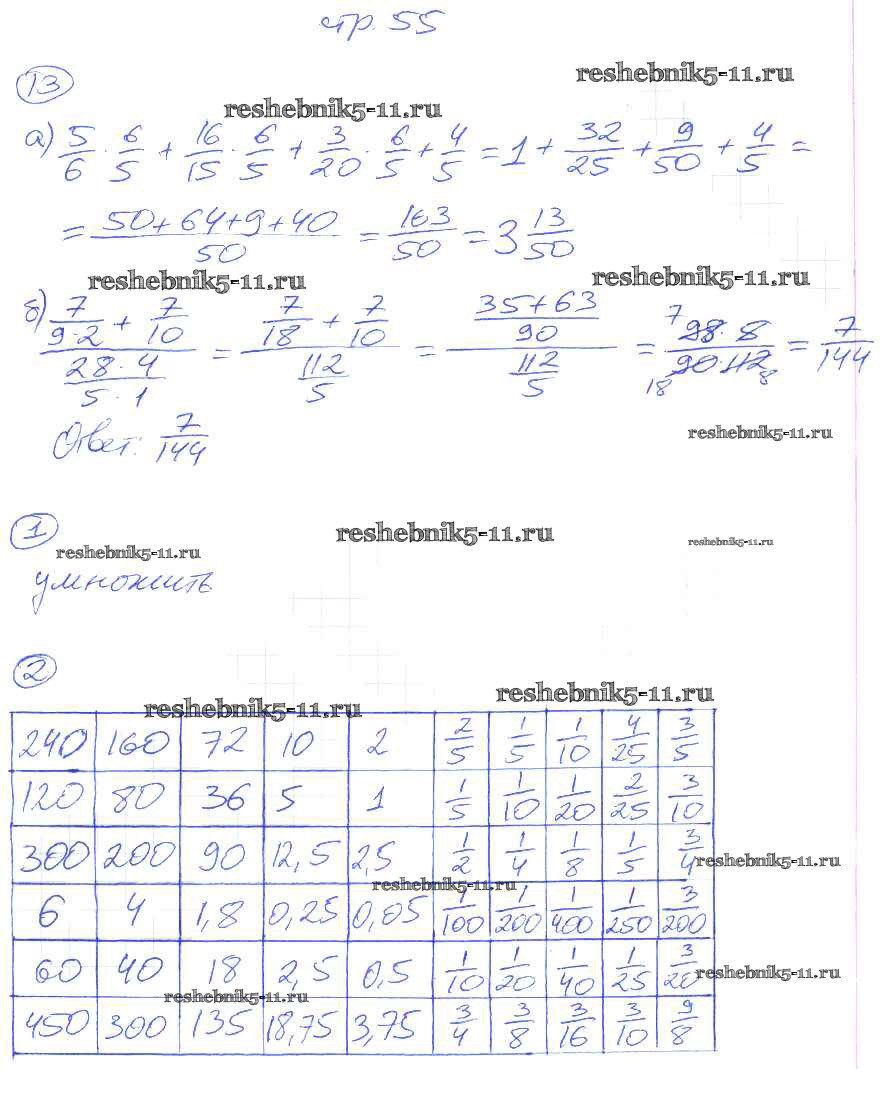 стр. 55
13
reshebnik5-11.ru
reshebnik5-11.ru
а) 5/6 · 6/5 + 16/15 · 6/5 + 3/20 · 6/5 + 4/5 = 1 + 32/25 + 9/50 + 4/5 =
= (50+64+9+40)/50 = 163/50 = 3 13/50
reshebnik5-11.ru reshebnik5-11.ru
б) (7/(9·2) + 7/10)/((28·4)/(5·1)) = (7/18 + 7/10)/(112/5) = ((35+63)/90)/(112/5) = 7 (98·8)/(90·112) 18 8 = 7/144
Ответ: 7/144
reshebnik5-11.ru
1
reshebnik5-11.ru reshebnik5-11.ru reshebnik5-11.ru
умножить
2
reshebnik5-11.ru reshebnik5-11.ru
240 160 72 10 2 2/5 1/5 1/10 4/25 3/5
120 80 36 5 1 1/5 1/10 1/20 2/25 3/10
300 200 90 12,5 2,5 1/2 1/4 1/8 1/5 3/4
reshebnik5-11.ru
reshebnik5-11.ru
6 4 1,8 0,25 0,05 1/100 1/200 1/400 1/250 3/200
60 40 18 2,5 0,5 1/10 1/20 1/40 1/25 3/20
reshebnik5-11.ru
reshebnik5-11.ru
450 300 135 18,75 3,75 3/4 3/8 3/16 3/10 9/8